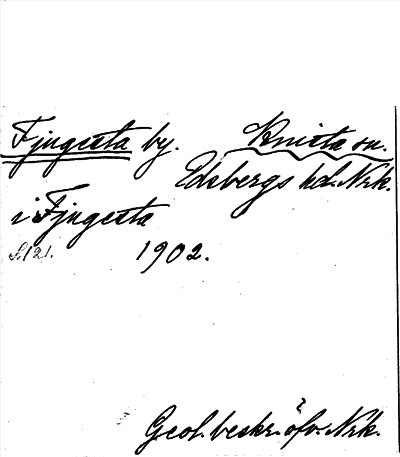 Fjugesta by. Knista sn.
Edsbergs hd. Nrk.
i Fjugesta
S. 121. 1902.
Geol. beskr. öfv. Nrk.